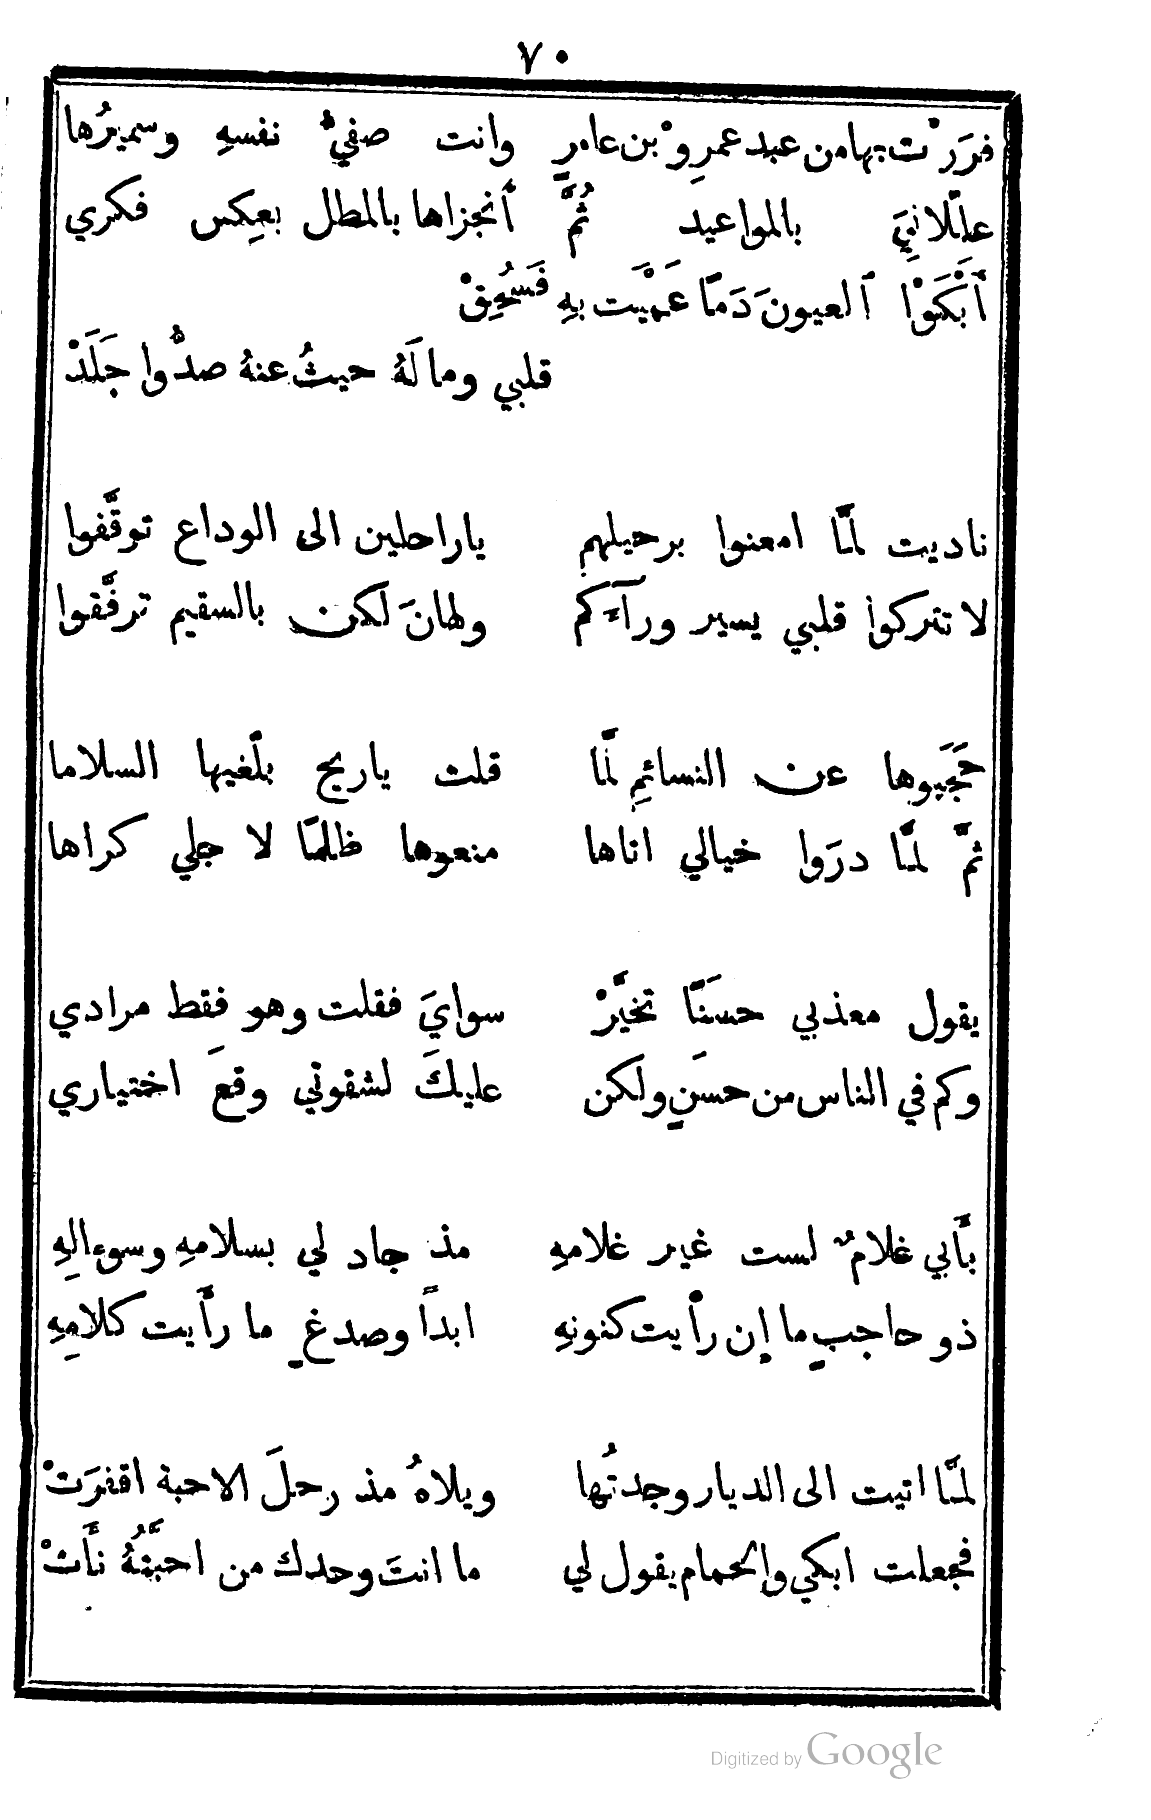 ٧٠
فرَرْت بها من عبد عمرِوْ بن عامرٍ وانت صفيُّ نفسهِ وسميرُها
علَّلانيَ بالمواعيد ثُمَّ أنجزاها بالمطل بعِكس فكري
أَبْكَوْا ٱلعيونَ دَمًا عَمْيَت بهِ فَسُحِقْ
قلبي وما لَهُ حيثُ عنهُ صدُّوا جَلَدْ
ناديت لمَّا امعنوا برحيلهم ياراحلين الى الوداع توقَّفوا
لا تتركوا قلبي يسير ورآءكم ولهانَ لكن بالسقيم ترفَّقوا
حَجَبوها عن النسائمِ لمَّا قلت ياريح بلّغيها السلاما
ثمَّ لمَّا درَوا خيالي اتاها منعوها ظلمًا لاجلي كراها
يقول معذبي حسَنًا تخيَّرْ سوايَ فقلت وهو فقط مرادي
وكم في الناس من حسَنٍ ولكن عليكَ لشقوتي وقعَ اختياري
بأَبي غلامٌ لست غير غلامهِ مذ جاد لي بسلامهِ وسوءالهِ
ذو حاجبٍ ما إن رأيت كنونهِ ابداً وصدغٍ ما رأَيت كلامهِ
لمَّا اتيت الى الديار وجدتُها ويلاهُ مذ رحلَ الاحبة اقفرَتْ
فجعلت ابكي والحمام يقول لي ما انتَ وحدك من احبَّتهُ نأَتْ
Digitized by Google